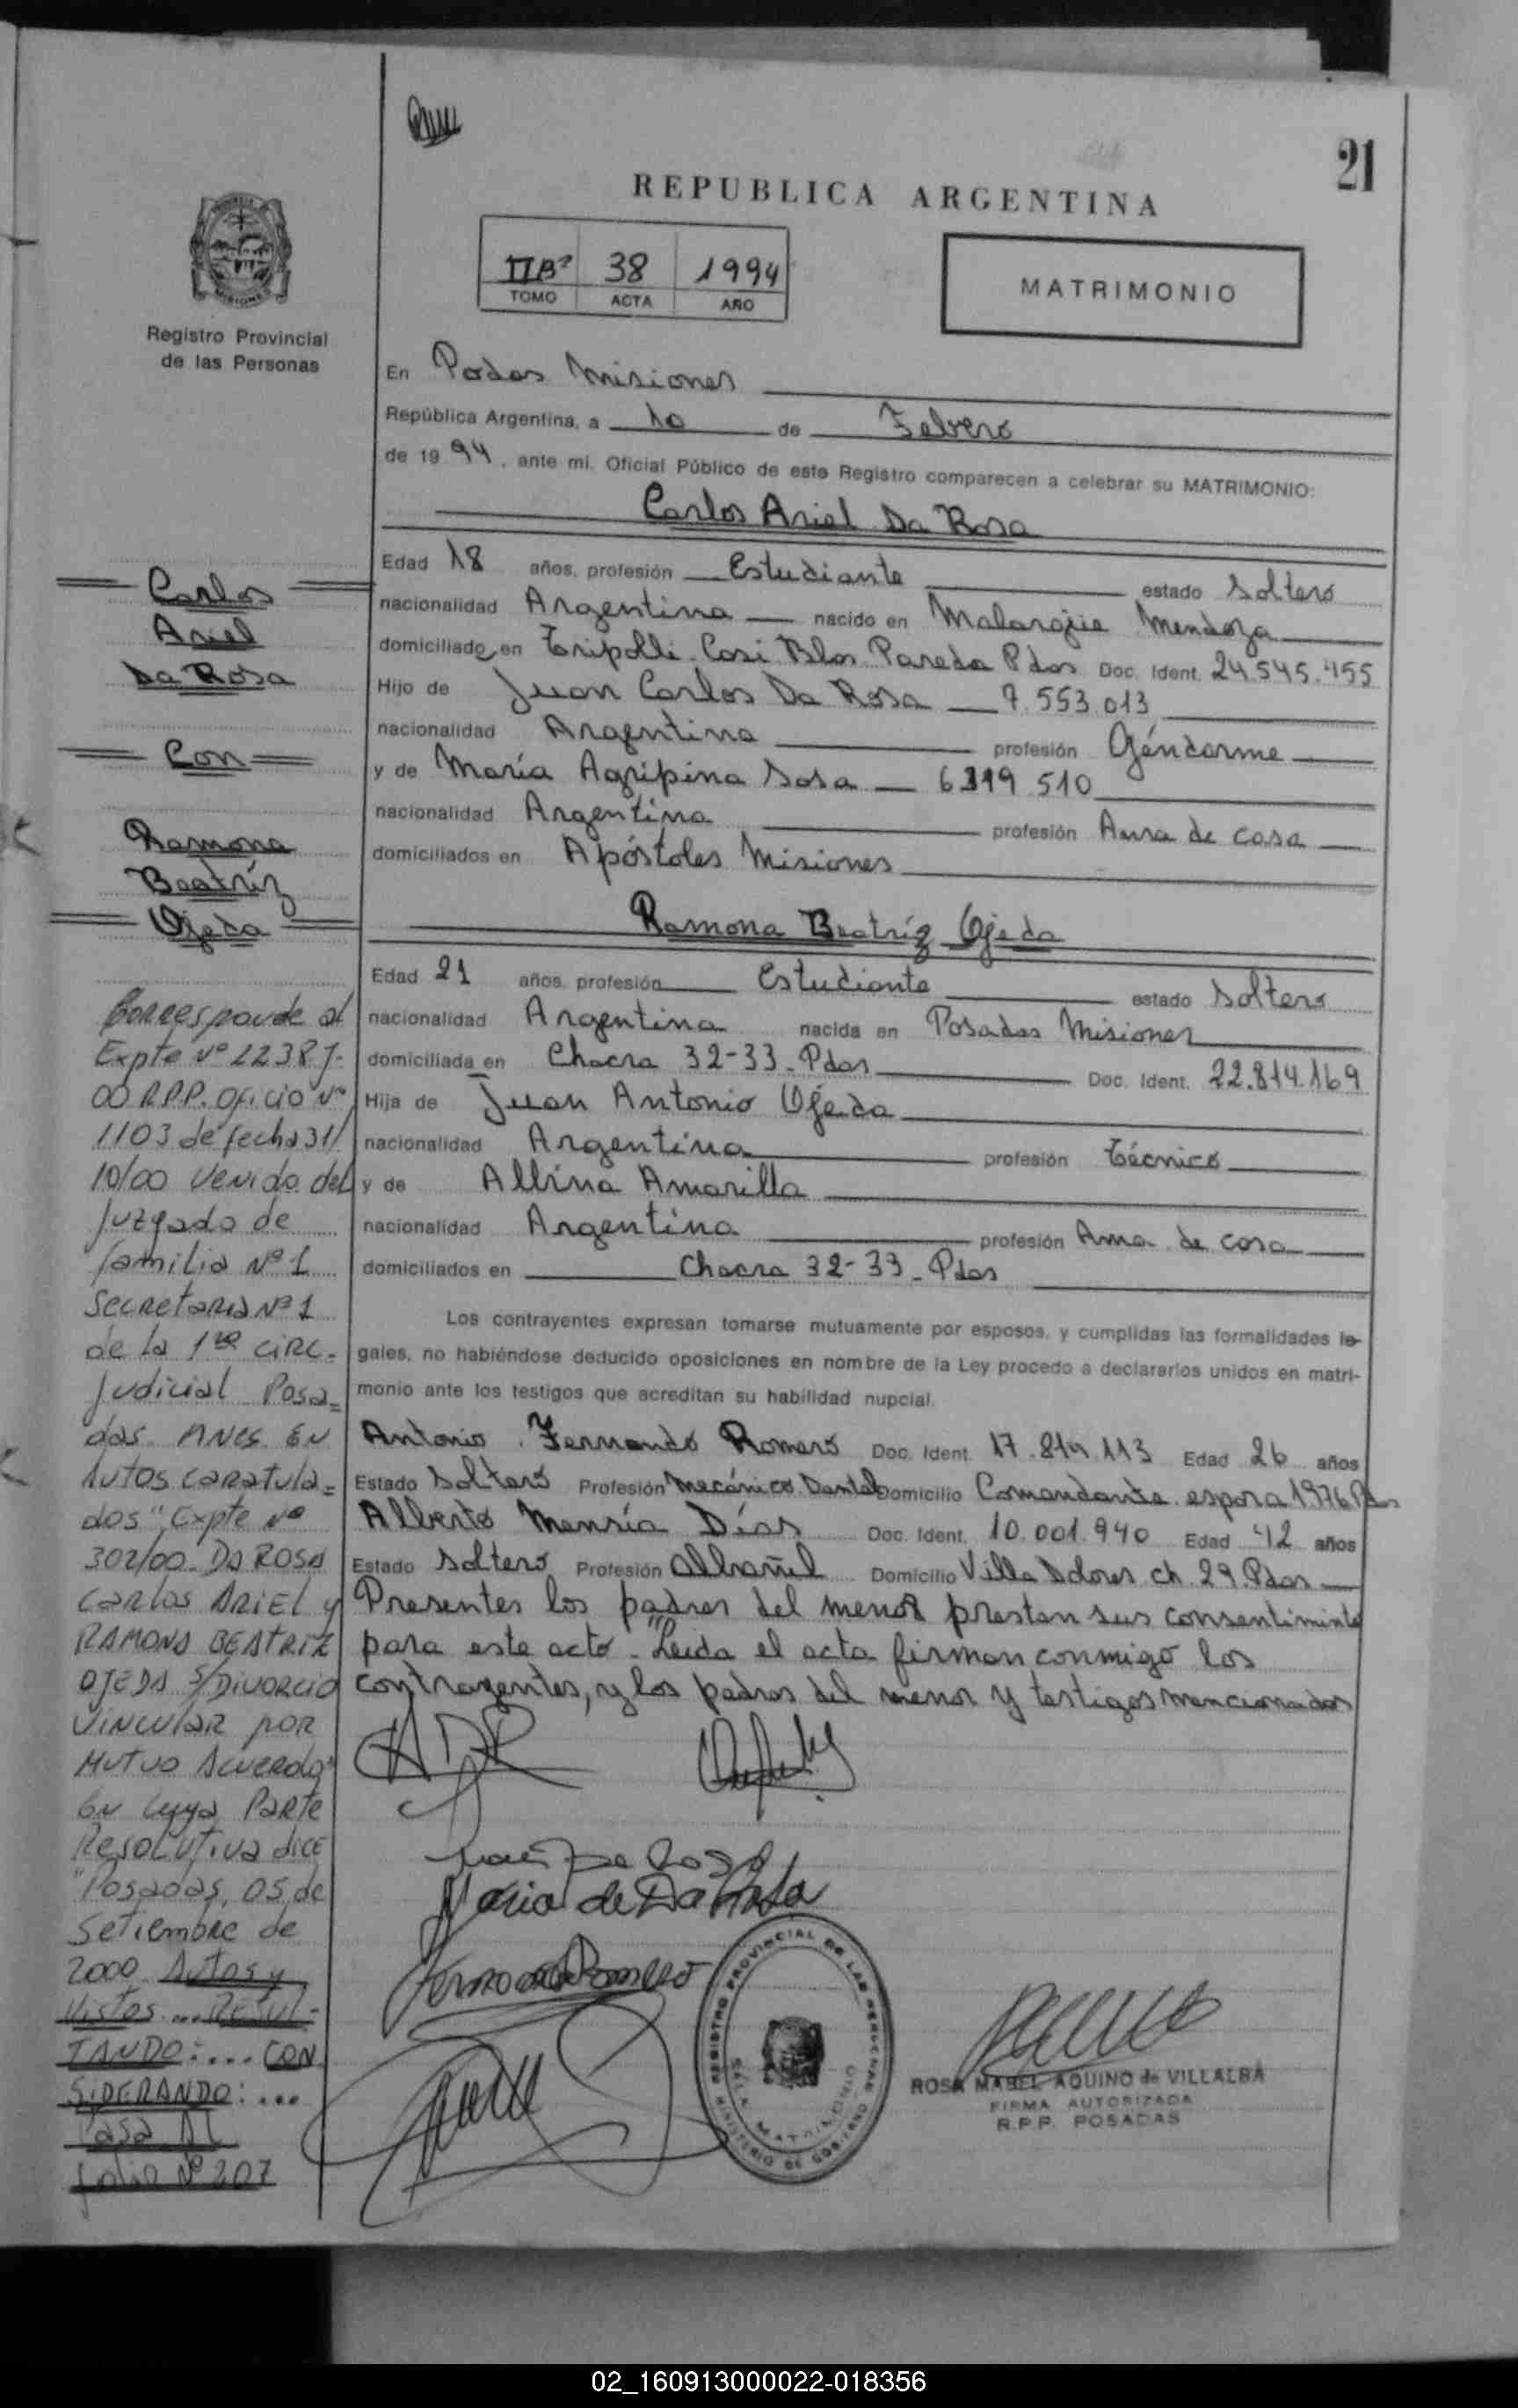 21
REPUBLICA ARGENTINA
38 1994
TOMO ACTA AÑO
MATRIMONIO
Registro Provincial
de las Personas
En Posdas Misiones
República Argentina, a 10 de Febrero
de 1994, ante mi, Oficial Público de este Registro comparecen a celebrar su MATRIMONIO:
Carlos Ariel Da Rosa
Edad 18 años, profesión Estudiante estado Soltero
nacionalidad Argentina nacido en Malargüe Mendoza
domiciliado en Tripolli Pdas Doc. Ident. 24.545.455
Hijo de Juan Carlos Da Rosa 7.553.013
nacionalidad Argentina profesión Géndarme
y de María Agripina Sosa
nacionalidad Argentina profesión Ama de casa
domiciliados en Apóstoles Misiones
Ramona Beatríz Ojeda
Edad 21 años, profesión Estudiante estado Soltera
nacionalidad Argentina nacida en Posadas Misiones
domiciliada en Chacra 32-33- Pdas Doc. Ident. 22.814.169
Hija de Juan Antonio Ojeda
nacionalidad Argentina profesión Técnico
y de Albina Amarilla
nacionalidad Argentina profesión Ama de casa
domiciliados en Chacra 32-33- Pdas
Los contrayentes expresan tomarse mutuamente por esposos, y cumplidas las formalidades le-
gales, no habiéndose deducido oposiciones en nombre de la Ley procedo a declararlos unidos en matri-
monio ante los testigos que acreditan su habilidad nupcial.
Antonio Fernando Romero Doc. Ident. Edad 26 años
Estado Soltero Profesión Mecánico Dental Domicilio Comandante espora 1976 Pdas
Alberto Mensía Días Doc. Ident. 10.001.940 Edad 42 años
Estado Soltero Profesión Albañil Domicilio Villa Dolores ch. 29. Pdas
Presentes los padres del menor prestan sus consentiminto
para este acto - Leida el acta firman conmigo los
contrayentes, y los padres del menor y testigos mencionados
Maria de Da Rosa
REGISTRO PROVINCIAL DE LAS PERSONAS
MINISTERIO DE GOBIERNO
ROSA MABEL AQUINO de VILLALBA
FIRMA AUTORIZADA
R.P.P. POSADAS
Carlos
Ariel
Da Rosa
Con
Ramona
Beatríz
Ojeda
Corresponde al
Expte Nº 12387-
00 R.P.P. Oficio Nº
1103 de fecha 31/
10/00 Venido del
Juzgado de
familia Nº 1
Secretaria Nº 1
de la 1ra CIRC.
Judicial Posa=
das Mnes EN
Autos caratula=
dos "Expte Nº
302/00- DA ROSA
CARLOS ARIEL y
RAMONA BEATRIZ
OJEDA S/DIVORCIO
VINCULAR POR
MUTUO ACUERDO"
EN Cuya PARTE
Resolutiva dice
"Posadas, 05 de
Setiembre de
2000 Autos y
Vistos... RESUL-
TANDO:... CON
SIDERANDO:...
Pasa Al
folio Nº 207
02_160913000022-018356